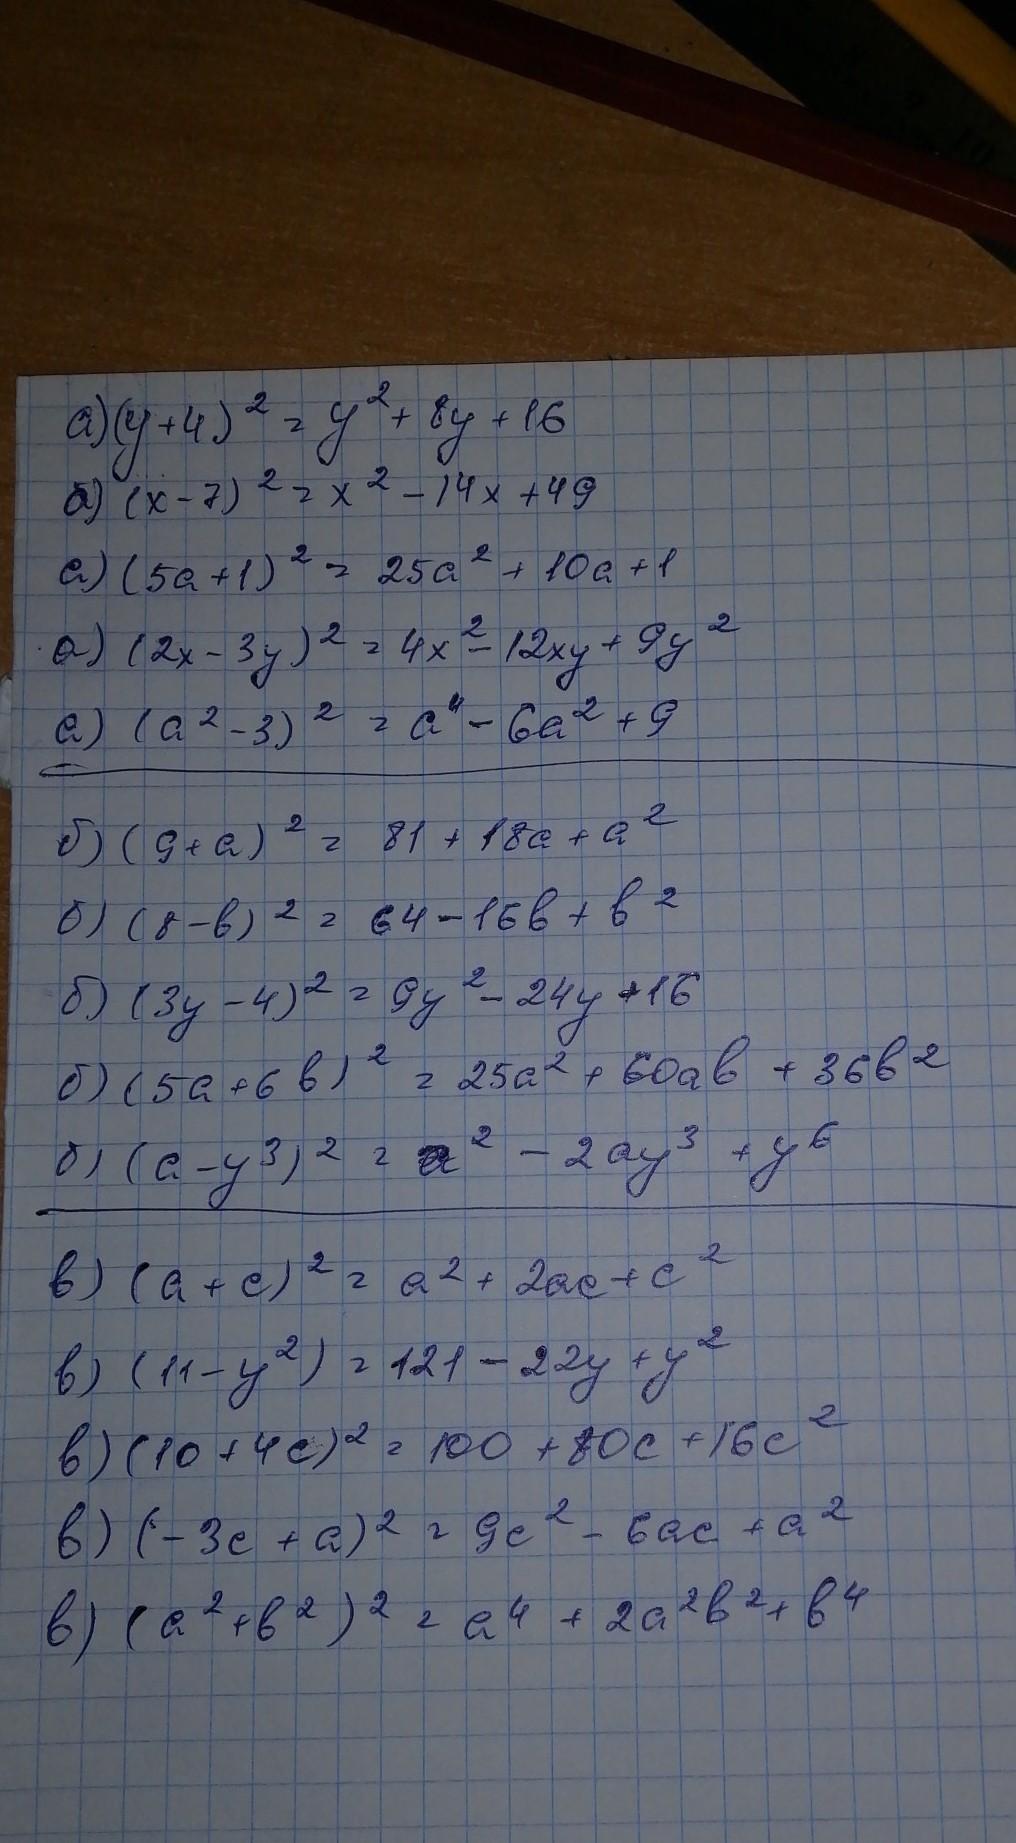 а) (y+4)² = y² + 8y + 16
б) (x-7)² = x² - 14x + 49
а) (5a+1)² = 25a² + 10a + 1
а) (2x-3y)² = 4x² - 12xy + 9y²
а) (a²-3)² = a⁴ - 6a² + 9
б) (9+a)² = 81 + 18a + a²
б) (8-b)² = 64 - 16b + b²
б) (3y-4)² = 9y² - 24y + 16
б) (5a+6b)² = 25a² + 60ab + 36b²
б) (a-y³)² = a² - 2ay³ + y⁶
в) (a+c)² = a² + 2ac + c²
в) (11-y²) = 121 - 22y + y²
в) (10+4c)² = 100 + 80c + 16c²
в) (-3c+a)² = 9c² - 6ac + a²
в) (a²+b²)² = a⁴ + 2a²b² + b⁴